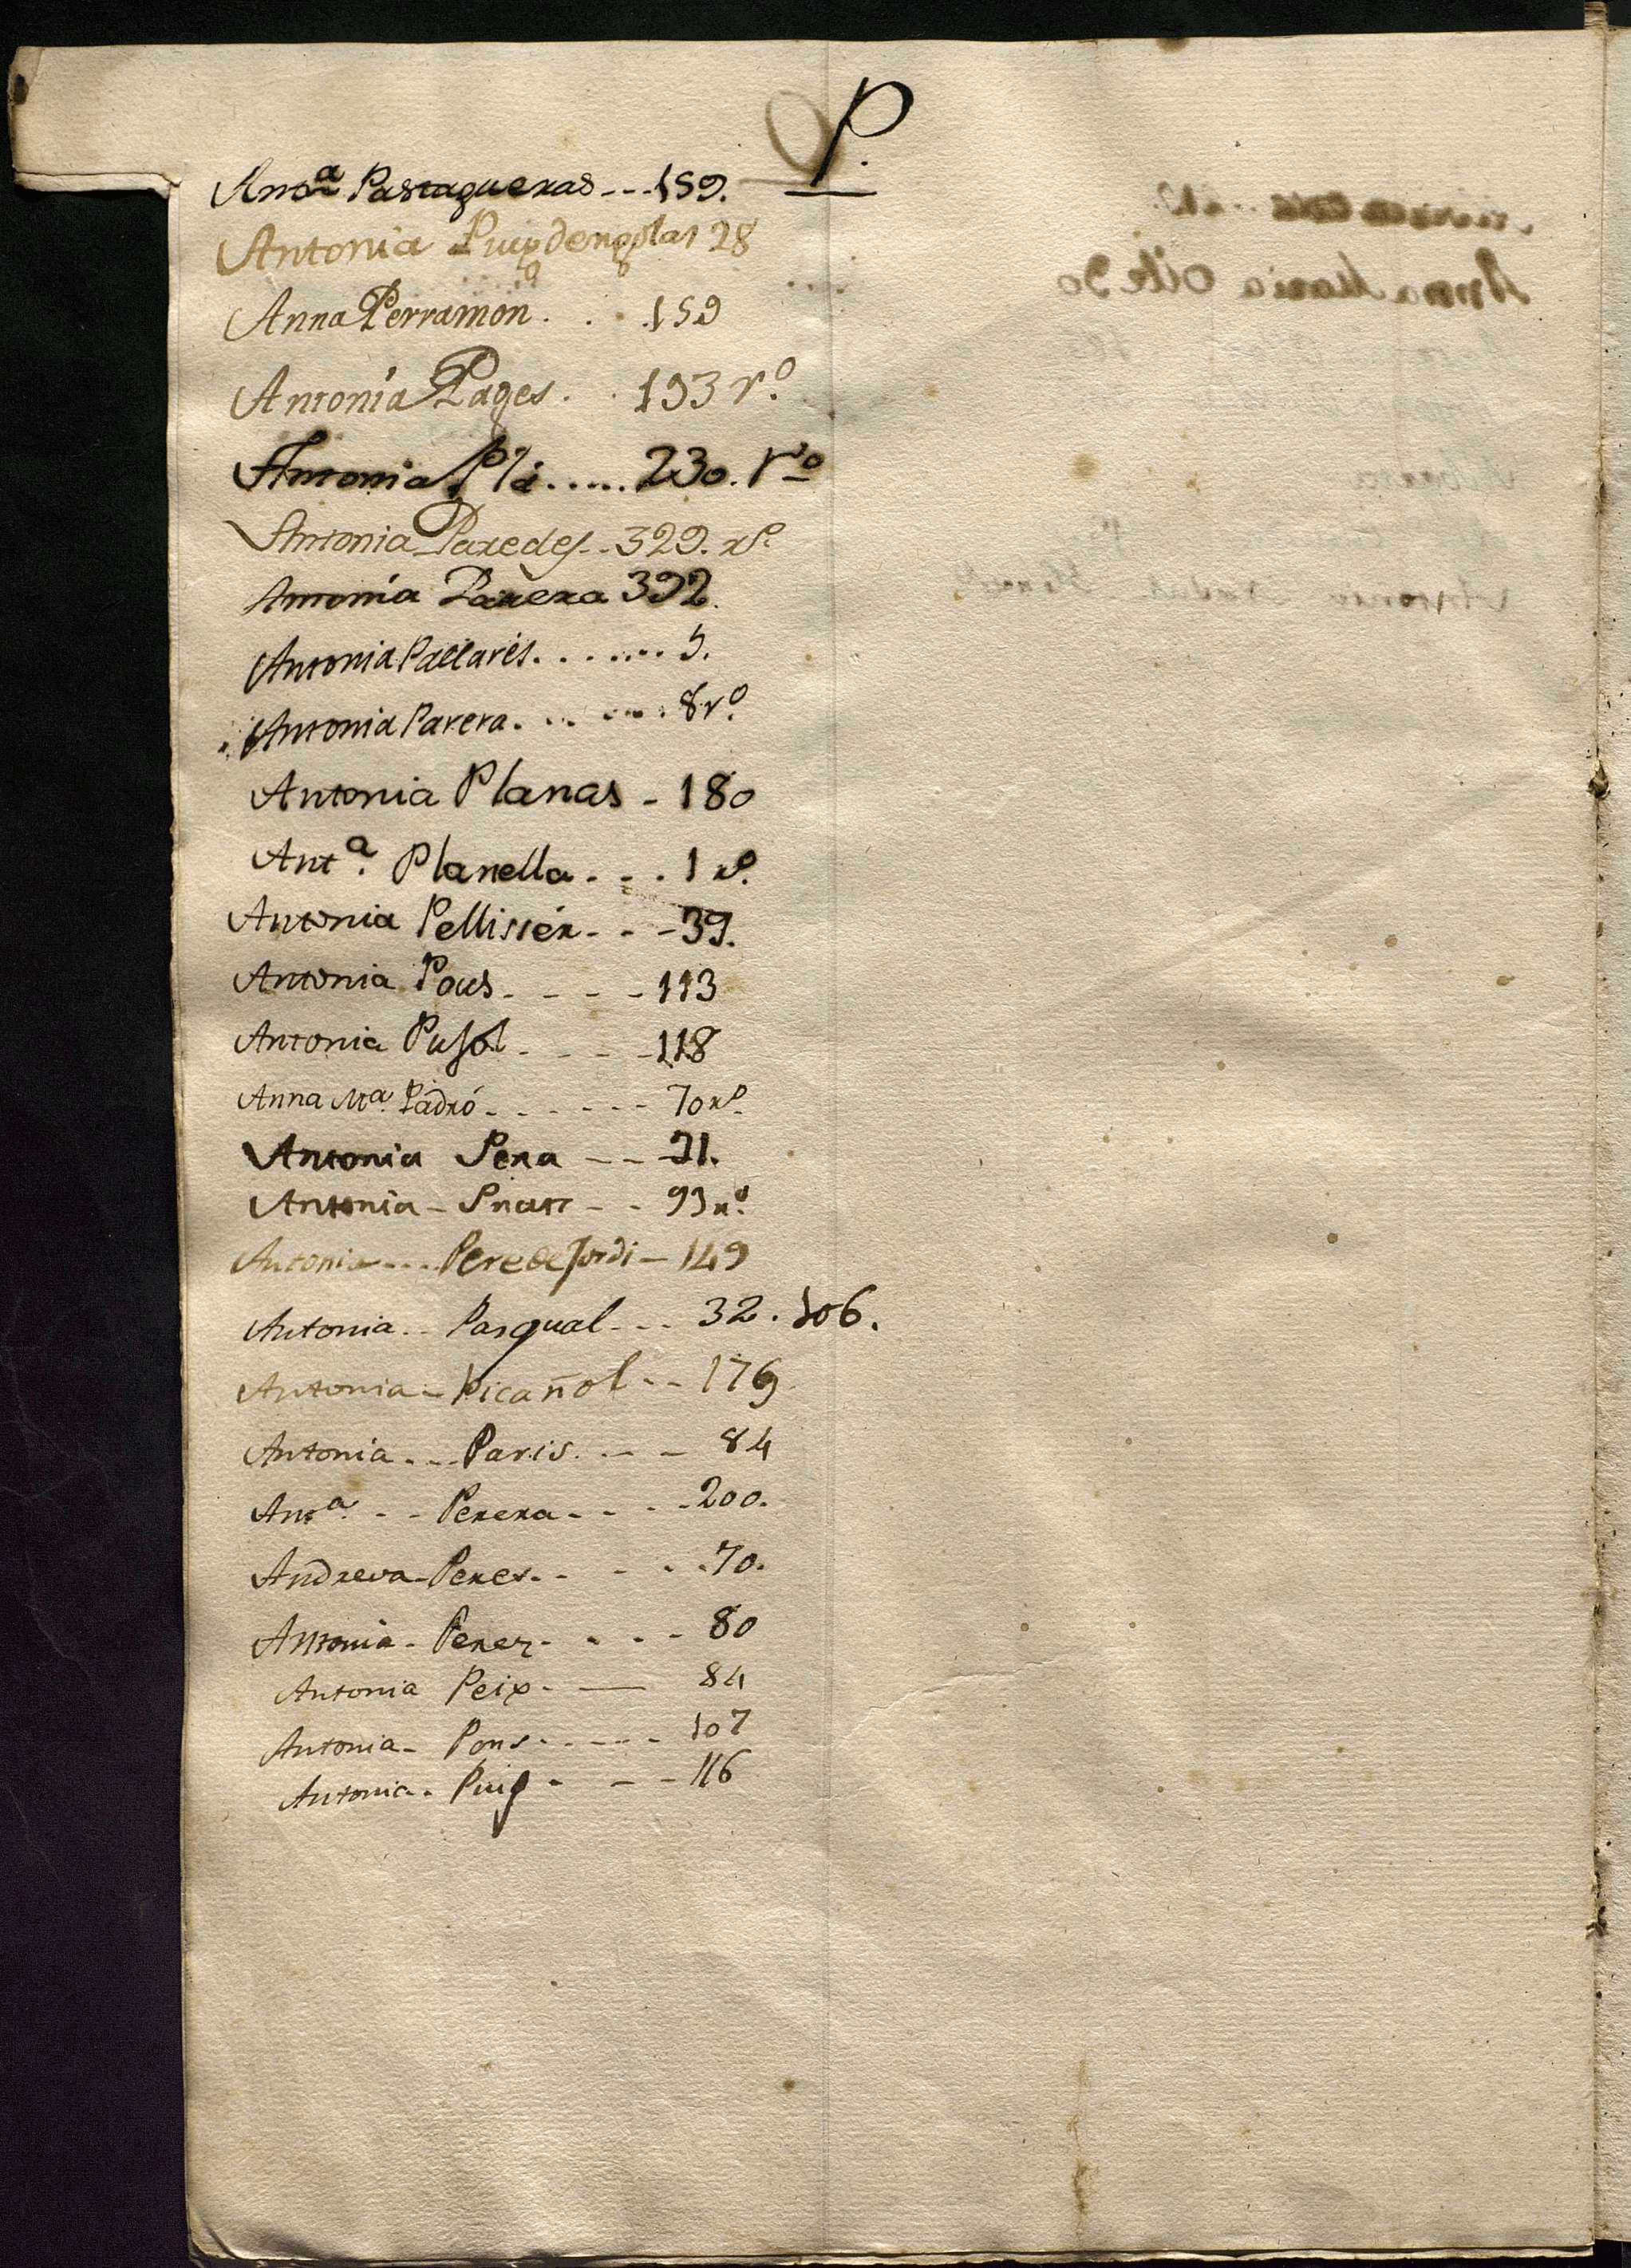 P.
Antª Pastagueras - - - 159.
Antonia Puigdengolas 28
Anna Perramon . . . 159
Antonia Pages . . 193 rº
Antonia Plá ..... 230. rº
Antonia Paredes - - 329. rº
Antonia Parera 392.
Antonia Pallarés . . . . . . . 5.
Antonia Parera . . . . . . . 8 rº
Antonia Planas - 180
Antª Planella - - . 1 rº
Antonia Pellissér - - - 39.
Antonia Pous - - - - 113
Antonia Pujol - - - - 118
Anna Mª Padró - - - - - - 70 rº
Antonia Pera - - - 21.
Antonia - Prats - - 93 rº
Antonia - - - Peredejordi - 149
Antonia - - Pasqual - - - 32 . 106.
Antonia - Picañol - - 179
Antonia - - - Paris - - - 84
Antª - - Perera - - - - 200.
Andreva - Peres - - - - - 70.
Antonia - Perez - - - - 80
Antonia Peix - — 84
Antonia - Pons - - - - - 107
Antonia - Puig - - - 116
Anna Maria Olle 90